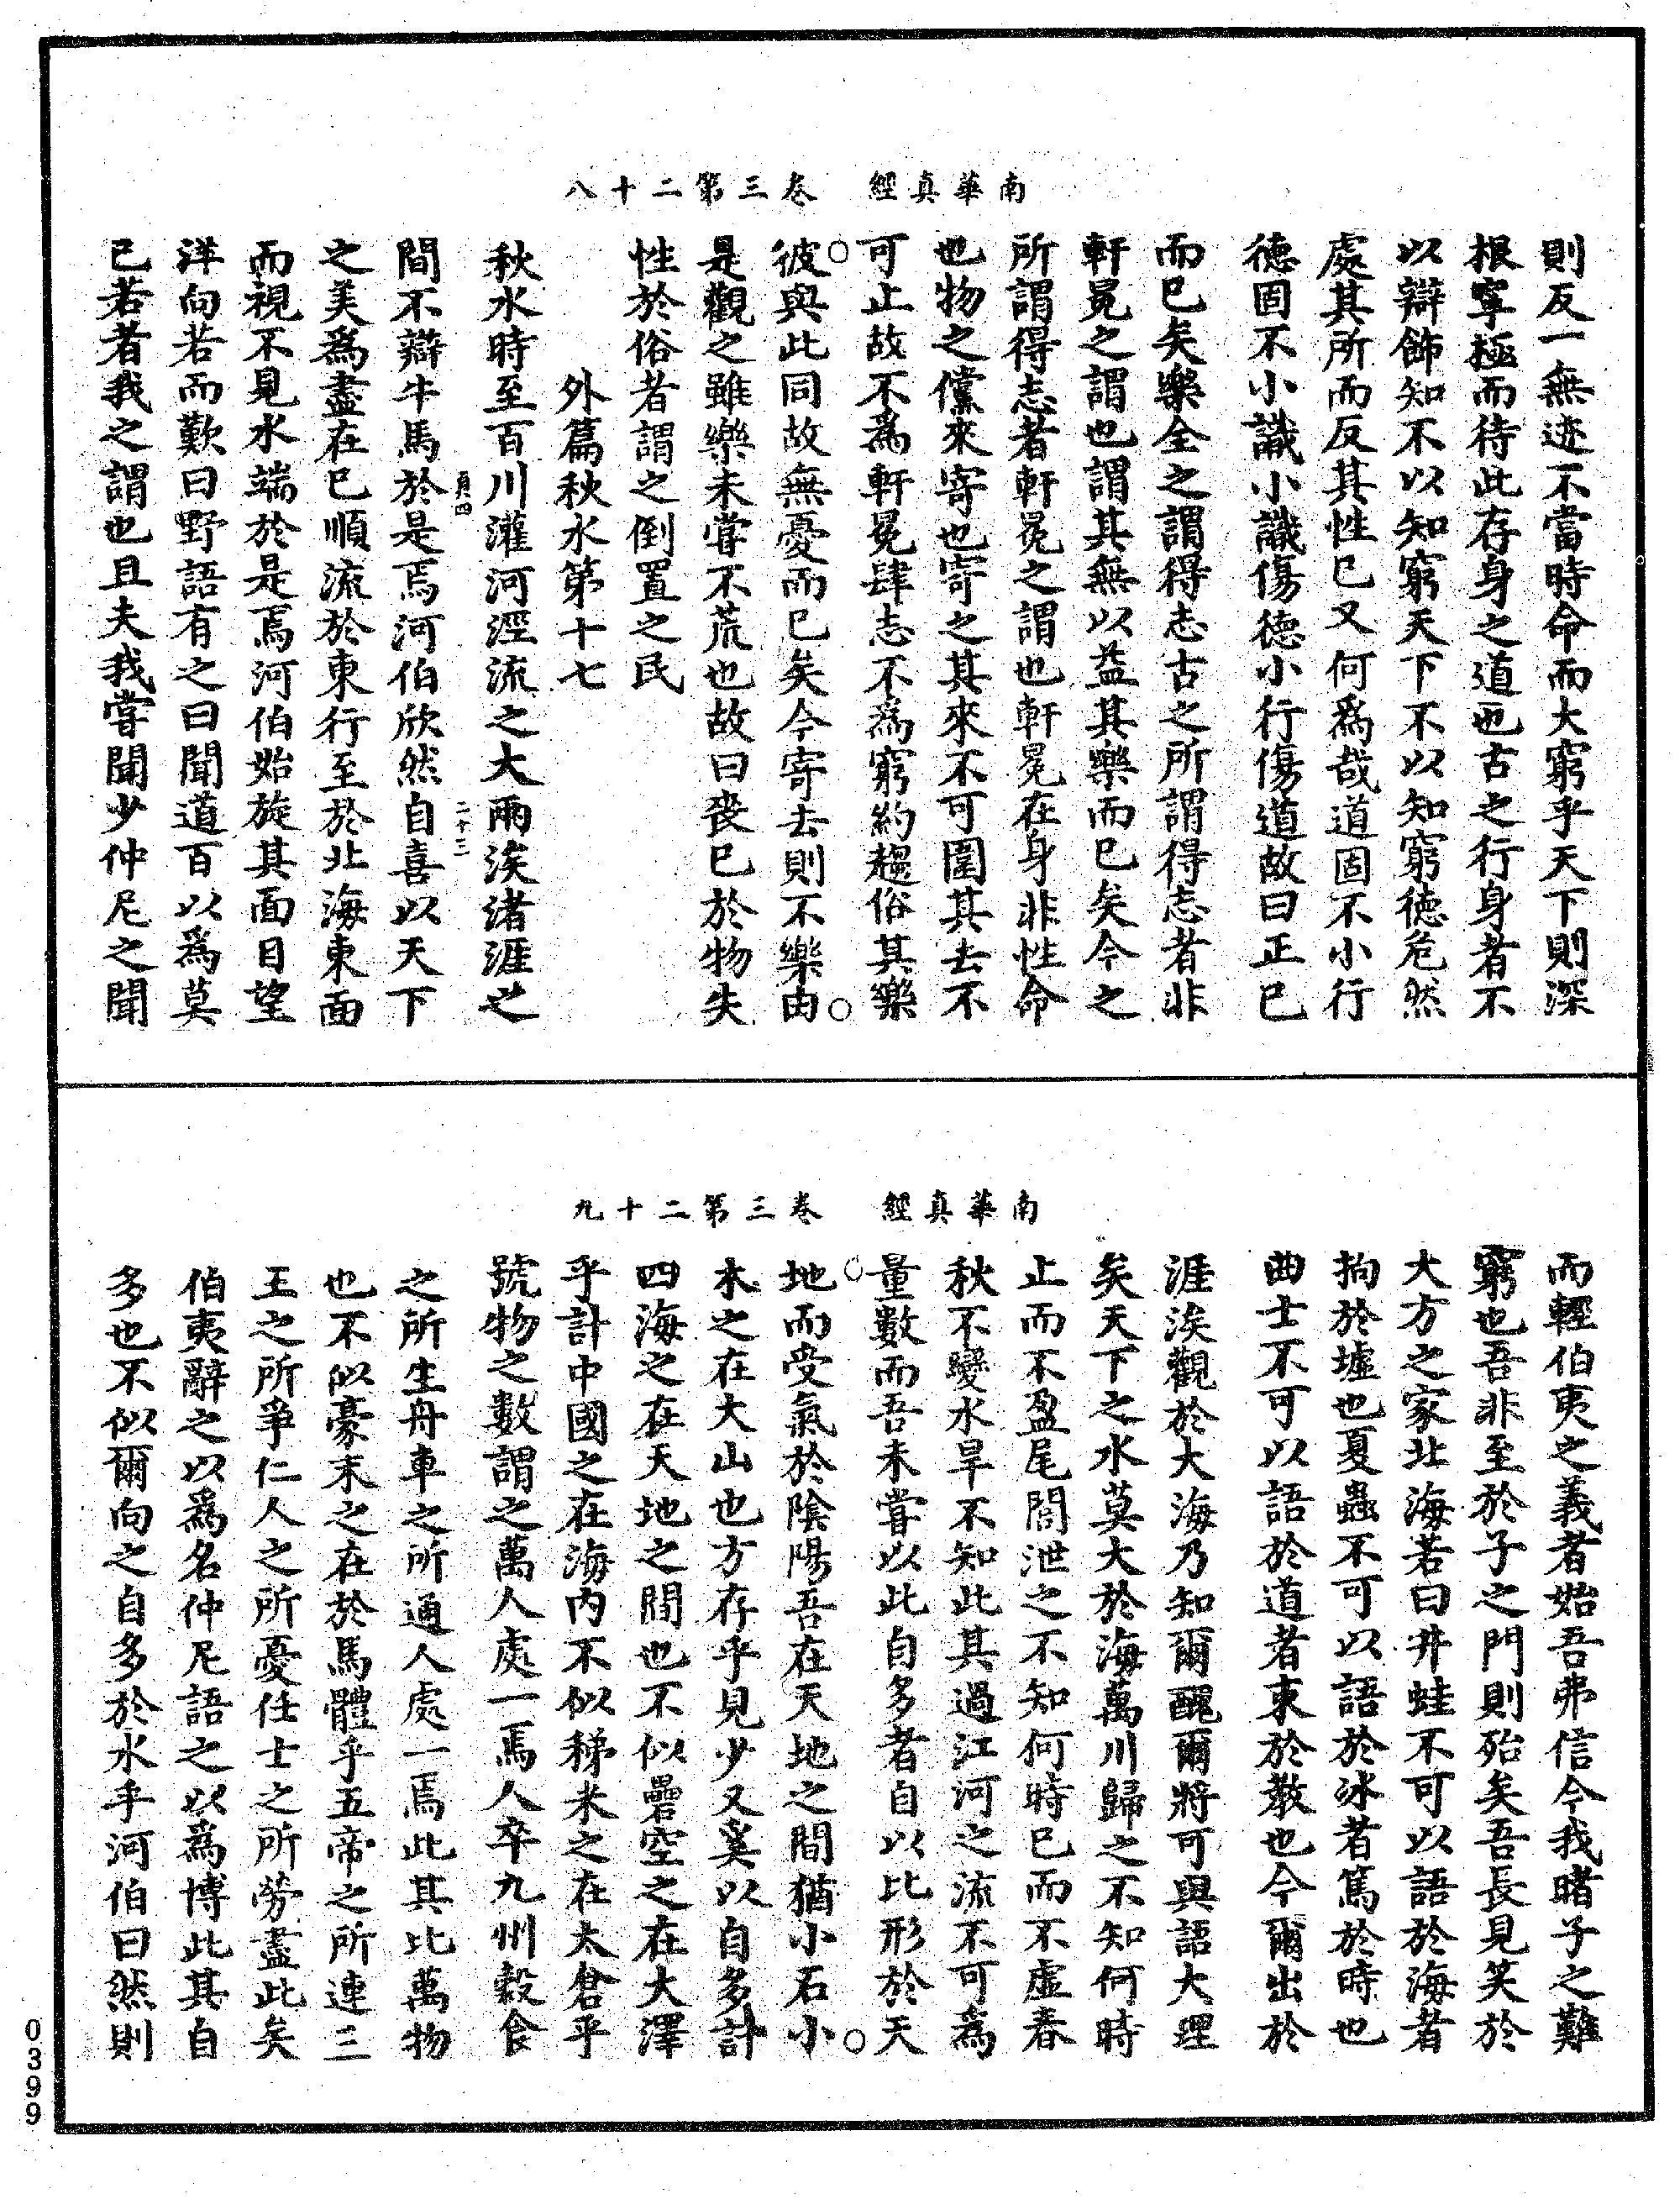 南華真經　卷三第二十八
則反一無迹不當時命而大窮乎天下則深
根寧極而待此存身之道也古之行身者不
以辯飾知不以知窮天下不以知窮德危然
處其所而反其性已又何爲哉道固不小行
德固不小識小識傷德小行傷道故曰正己
而已矣樂全之謂得志古之所謂得志者非
軒冕之謂也謂其無以益其樂而已矣今之
所謂得志者軒冕之謂也軒冕在身非性命
也物之儻來寄也寄之其來不可圉其去不
可止故不爲軒冕肆志不爲窮約趨俗其樂
彼與此同故無憂而已矣今寄去則不樂由
是觀之雖樂未嘗不荒也故曰喪已於物失
性於俗者謂之倒置之民
外篇秋水第十七
秋水時至百川灌河涇流之大兩涘渚涯之
二十三
間不辯牛馬於是焉河伯欣然自喜以天下
之美爲盡在已順流於東行至於北海東面
而視不見水端於是焉河伯始旋其面目望
洋向若而歎曰野語有之曰聞道百以爲莫
已若者我之謂也且夫我嘗聞少仲尼之聞
南華真經　卷三第二十九
而輕伯夷之義者始吾弗信今我睹子之難
窮也吾非至於子之門則殆矣吾長見笑於
大方之家北海若曰井蛙不可以語於海者
拘於墟也夏蟲不可以語於冰者篤於時也
曲士不可以語於道者束於教也今爾出於
涯涘觀於大海乃知爾醜爾將可與語大理
矣天下之水莫大於海萬川歸之不知何時
止而不盈尾閭泄之不知何時已而不虛春
秋不變水旱不知此其過江河之流不可爲
量數而吾未嘗以此自多者自以比形於天
地而受氣於陰陽吾在天地之間猶小石小
木之在大山也方存乎見少又奚以自多計
四海之在天地之間也不似礨空之在大澤
乎計中國之在海內不似稊米之在太倉乎
號物之數謂之萬人處一焉人卒九州穀食
之所生舟車之所通人處一焉此其比萬物
也不似豪末之在於馬體乎五帝之所連三
王之所爭仁人之所憂任士之所勞盡此矣
伯夷辭之以爲名仲尼語之以爲博此其自
多也不似爾向之自多於水乎河伯曰然則
0399